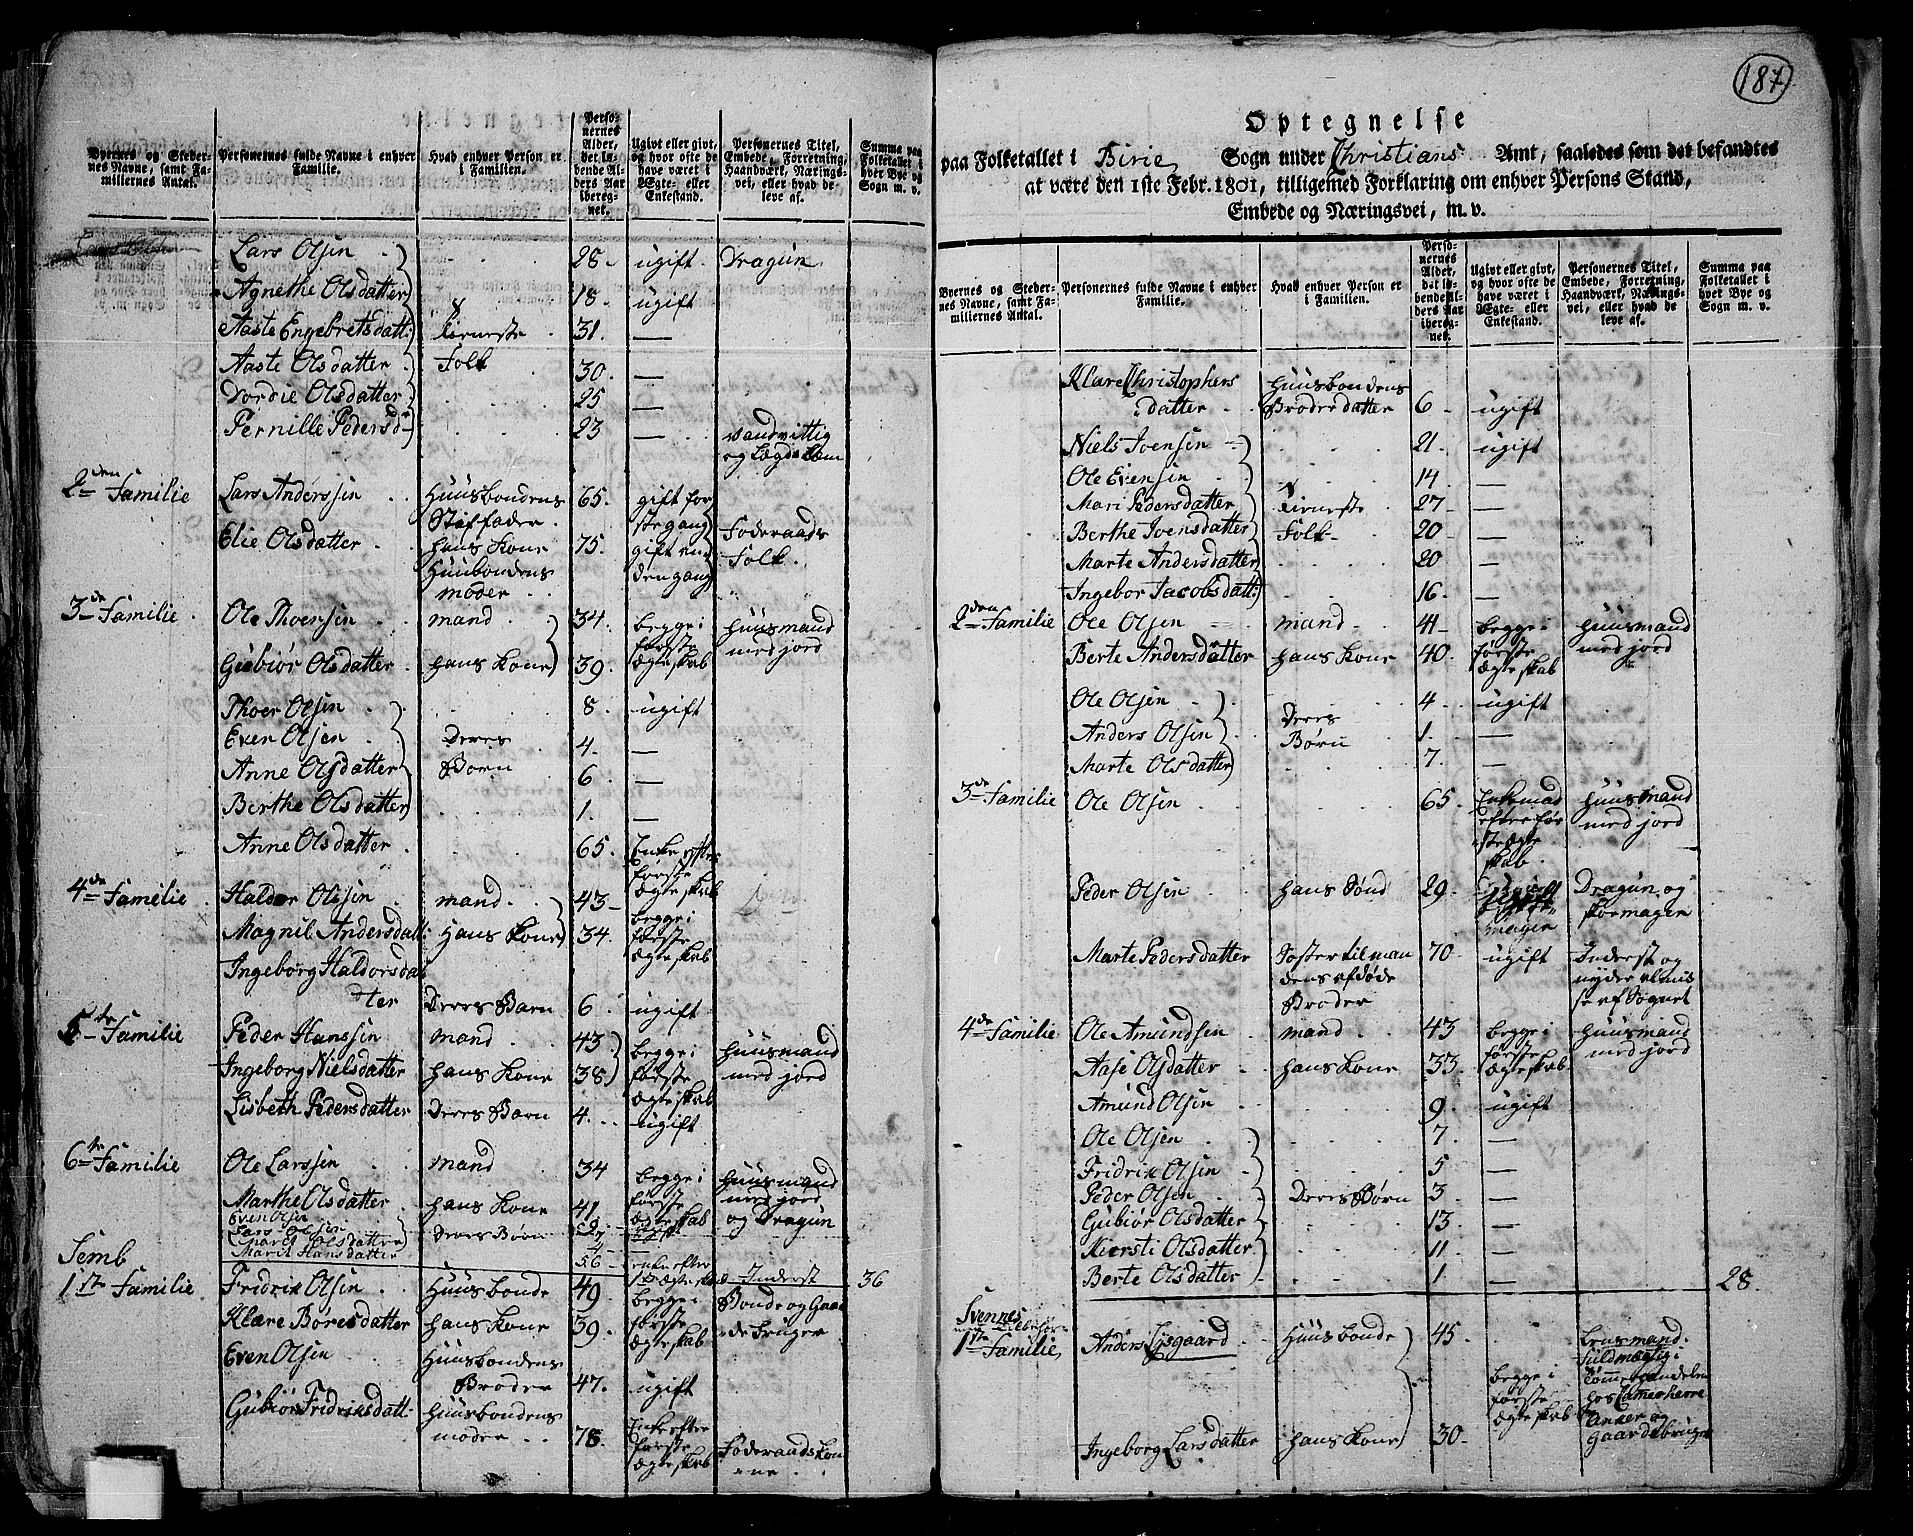 187
Byernes og Stedernes Navne, samt Familiernes Antal.
Personernes fulde Navne i enhver Familie.
Hvad enhver Person er i Familien.
Personernes Alder, det løbende Alders Aar iberegnet.
Ugivt eller givt, og hvor ofte de have været i Ægte- eller Enkestand.
Personernes Titel, Embede, Forretning, Haandværk, Næringsvei, eller hvad de leve af.
Summa paa Folketallet i hver Bye og Sogn m. v.
Lars Olsen 28 ugift Dragun
Agnethe Olsdatter 18 ugift
Aaste Engebretsdatt: Tieneste 31 —
Aaste Olsdatter Folk 30 —
Dordie Olsdatter 25 —
Pernille Pedersd 23 — vandvittig
og Lægdslem
2den Familie Lars Anderssen Huusbondens 65 gift før
Stiffader ste gang
Elie Olsdatter hans Kone 75 gift an Føderaads
Huusbondens den gang Folk
moder
3de Familie Ole Thoersen mand 34 begge i Huusmand
Gubiør Olsdatter hans Kone 39 første med jord
ægteskab
Thoer Olsen 8 ugift
Even Olsen Deres 4 —
Anne Olsdatter Børn 6 —
Berthe Olsdatter 1 —
Anne Olsdatter 65 Enke efter
første
ægteskab
4de Familie Haldor Olssen mand 43 begge i
Magnil Andersdatt: Hans Kone 34 første
ægteskab
Ingeborg Haldorsda
tter Deres Barn 6 ugift
5te Familie Peder Hanssen mand 43 begge i Huusmand
Ingeborg Nielsdatter hans Kone 38 første med jord
ægteskab
Lisbeth Pedersdatter Deres Barn 4 ugift
6te Familie Ole Larssen mand 34 begge i Huusmand
Marthe Olsdatter hans Kone 41 første med jord
ægteskab og Dragun
Even Olsen
Lars Olsen Deres Børn
Marit Olsdatter
Marit Hansdatter 56 enke efter
1ste ægteskab Inderst 36
Semb
1ste Familie Fridrik Olsen Huusbonde 49 begge i Bonde og Gaar
Klare Børesdatter hans Kone 39 første debruger
ægteskab
Even Olsen Huusbondens
Broder 47 ugift
Gubiør Fridriksdatt Huusbondens
moder 78 Enke efter
første Føderaadskone
ægteskab
Optegnelse
paa Folketallet i Birie Sogn under Christians Amt, saaledes som det befandtes
at være den 1ste Febr. 1801, tilligemed Forklaring om enhver Persons Stand,
Embede og Næringsvei, m. v.
Byernes og Stedernes Navne, samt Familiernes Antal.
Personernes fulde Navne i enhver Familie.
Hvad enhver Person er i Familien.
Personernes Alder, dat løbende Alders Aar iberegnet.
Ugivt eller givt, og hvor ofte de have været i Ægte- eller Enkestand.
Personernes Titel, Embede, Forretning, Haandværk, Næringsvei, eller hvad de leve af.
Summa paa Folketallet i hvet Bye og Sogn m. v.
Klare Christophers Huusbondens
datter Broderdatter 6 ugift
Niels Joensen 21 ugift
Ole Evensen 14 —
Mari Pedersdatter Tieneste 27 —
Berthe Joensdatter Folk 20 —
Marte Andersdatter 20 —
Ingebor Jacobsdatt: 16 —
2den Familie Ole Olsen mand 41 begge i Huusmand
Berte Andersdatter hans Kone 40 første med jord
ægteskab
Ole Olsen 4 ugift
Anders Olsen Deres Børn 1 —
Marte Olsdatter 7 —
3de Familie Ole Olsen 65 Enkemand Huusmand
efter før med jord
ste ægte
skab
Peder Olsen hans Sønd 29 Dragun og
skomager
Marte Pedersdatter Søster til man 70 ugift Inderst og
dens afdøde nyder almis
Broder se af Sognet
4de Familie Ole Amundsen mand 43 begge i Huusmand
Aase Olsdatter hans Kone 33 første med jord
ægteskab
Amund Olsen 9 ugift
Ole Olsen 7 —
Fridrik Olsen 5 —
Peder Olsen Deres Børn 3 —
Gubiør Olsdatter 13 —
Kiersti Olsdatter 11 —
Berte Olsdatter 1 — 28
Svennes
1ste Familie Anders Lysgaard Huusbonde 45 Lensmand
Fuldmægtig i
begge i
første hos Camerherre
ægteskab Anker og
Ingeborg Larsdatter hans Kone 30 Gaardbruger